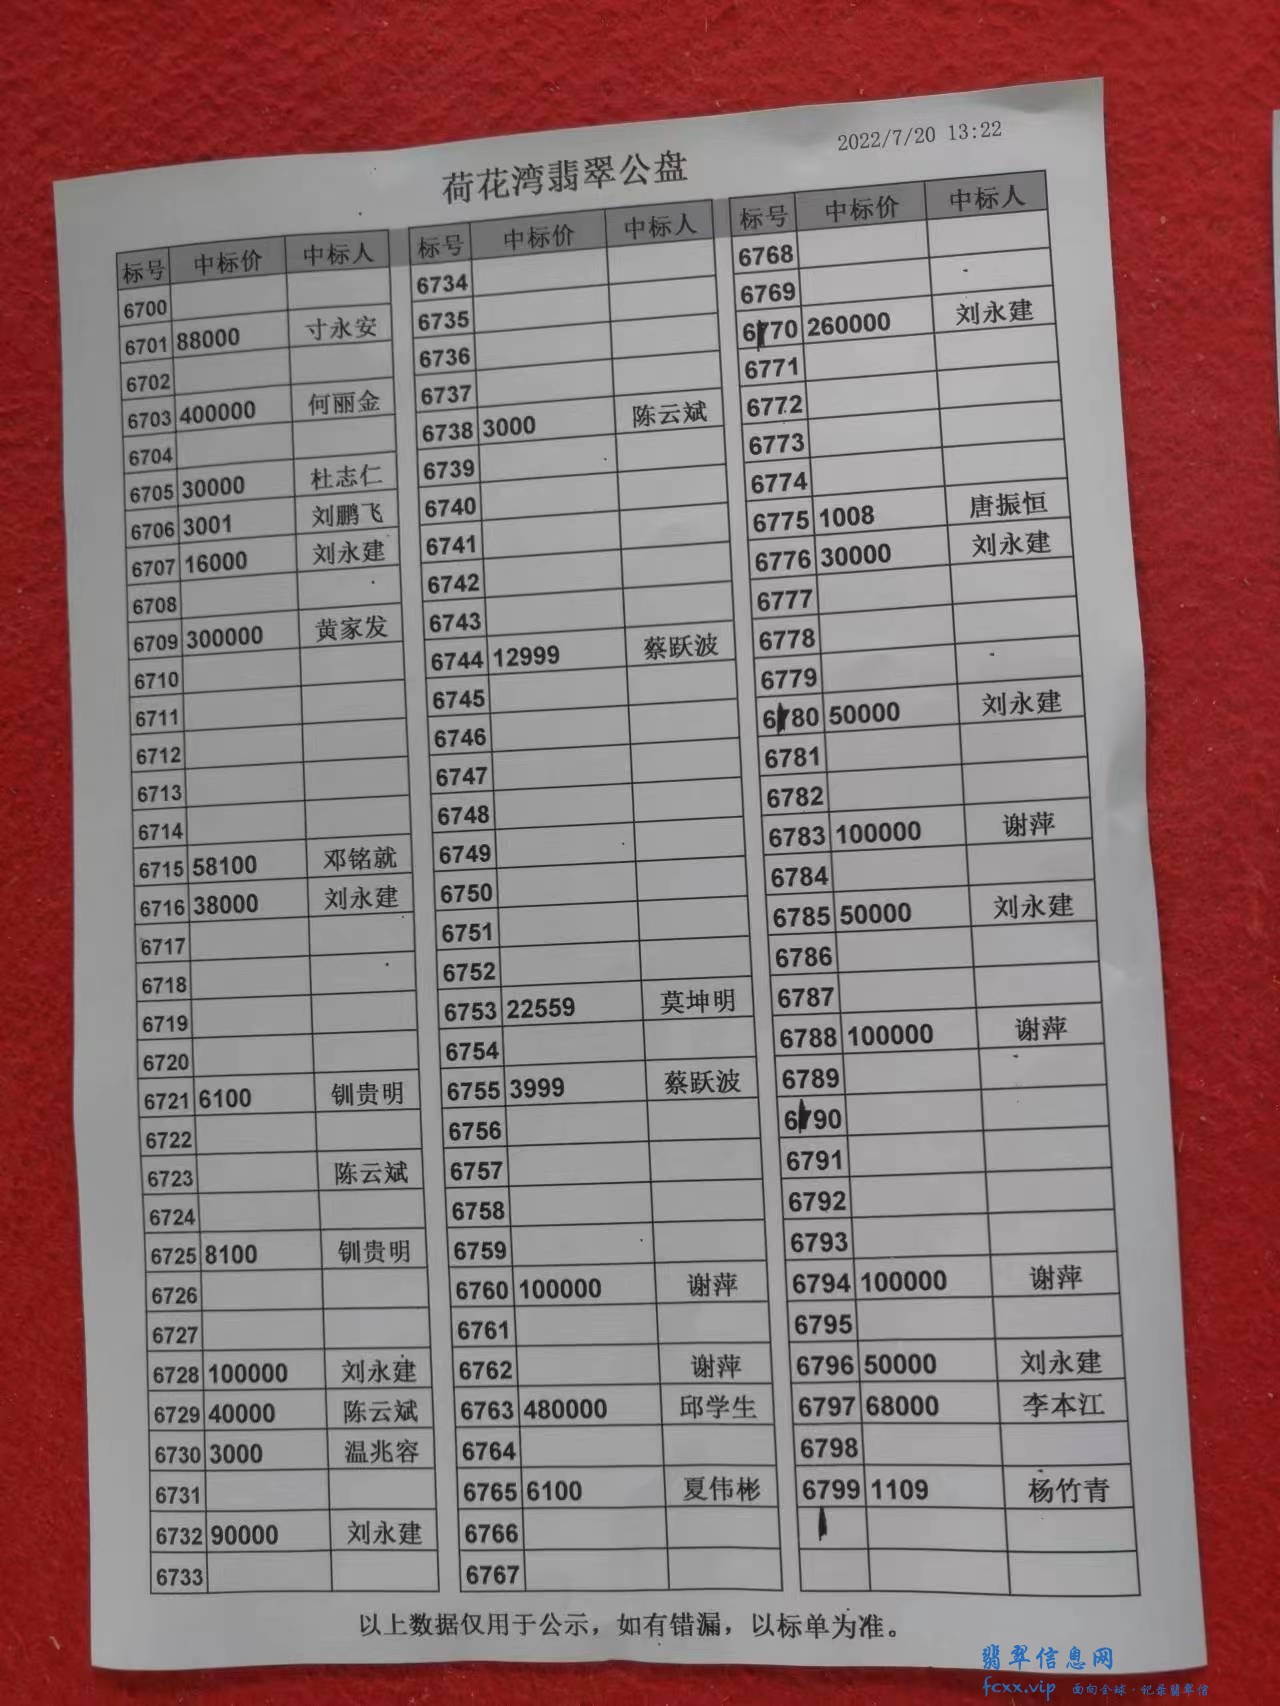 2022/7/20 13:22
荷花湾翡翠公盘
标号 中标价 中标人
6700
6701 88000 寸永安
6702
6703 400000 何丽金
6704
6705 30000 杜志仁
6706 3001 刘鹏飞
6707 16000 刘永建
6708
6709 300000 黄家发
6710
6711
6712
6713
6714
6715 58100 邓铭就
6716 38000 刘永建
6717
6718
6719
6720
6721 6100 钏贵明
6722
6723 陈云斌
6724
6725 8100 钏贵明
6726
6727
6728 100000 刘永建
6729 40000 陈云斌
6730 3000 温兆容
6731
6732 90000 刘永建
6733
标号 中标价 中标人
6734
6735
6736
6737
6738 3000 陈云斌
6739
6740
6741
6742
6743
6744 12999 蔡跃波
6745
6746
6747
6748
6749
6750
6751
6752
6753 22559 莫坤明
6754
6755 3999 蔡跃波
6756
6757
6758
6759
6760 100000 谢萍
6761
6762 谢萍
6763 480000 邱学生
6764
6765 6100 夏伟彬
6766
6767
标号 中标价 中标人
6768
6769
6770 260000 刘永建
6771
6772
6773
6774
6775 1008 唐振恒
6776 30000 刘永建
6777
6778
6779
6780 50000 刘永建
6781
6782
6783 100000 谢萍
6784
6785 50000 刘永建
6786
6787
6788 100000 谢萍
6789
6790
6791
6792
6793
6794 100000 谢萍
6795
6796 50000 刘永建
6797 68000 李本江
6798
6799 1109 杨竹青
以上数据仅用于公示，如有错漏，以标单为准。
翡翠信息网
fcxx.vip 面向全球·记录翡翠信